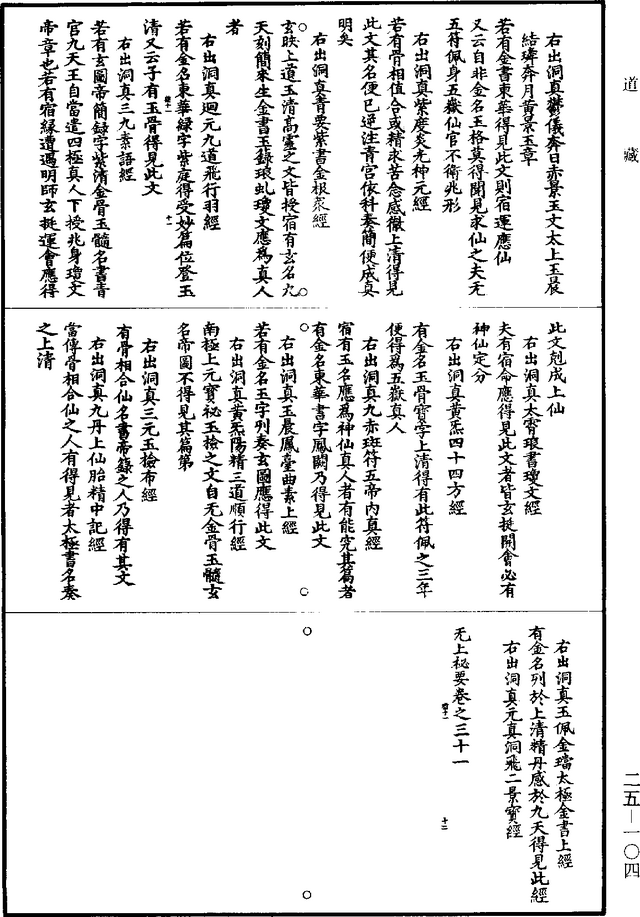 道藏
右出洞真鬱儀奔日赤景玉文太上玉晨
結璘奔月黃景玉章
若有金書東華得見此文則宿運應仙
又云自非金名玉格莫得聞見求仙之夫无
五符佩身五嶽仙官不衛兆形
右出洞真紫度炎光神元經
若有骨相值合或精求苦念感徹上清得見
此文其名便已逆注青宮依科奏簡便成真
明矣
右出洞真青要紫書金根衆經
玄映上道玉清高靈之文皆授宿有玄名九
天刻簡來生金書玉籙琅虬瓊文應為真人
者
右出洞真迴元九道飛行羽經
若有金名東華綠字紫庭得受妙篇位登玉
清又云子有玉骨得見此文
右出洞真三九素語經
若有玄圖帝簡綠字紫清金骨玉髓名書青
宮九天王自當遣四極真人下授兆身瓊文
帝章也若有宿緣遭遇明師玄挺運會應得
十一
此文剋成上仙
右出洞真太霄琅書瓊文經
夫有宿命應得見此文者皆玄挺開會必有
神仙定分
右出洞真黃炁四十四方經
有金名玉骨寶字上清得有此符佩之三年
便得為五嶽真人
右出洞真九赤斑符五帝內真經
宿有玉名應為神仙真人者有能究其篇者
有金名東華書字鳳闕乃得見此文
右出洞真玉晨鳳臺曲素上經
若有金名玉字列奏玄圖應得此文
右出洞真黃炁陽精三道順行經
南極上元寶祕玉檢之文自无金骨玉髓玄
名帝圖不得見其篇第
右出洞真三元玉檢布經
有骨相合仙名書帝籙之人乃得有其文
右出洞真九丹上仙胎精中記經
當傳骨相合仙之人有得見者太極書名奏
之上清
右出洞真玉佩金璫太極金書上經
有金名列於上清精丹感於九天得見此經
右出洞真元真洞飛二景寶經
无上祕要卷之三十一
十二
二五—一〇四